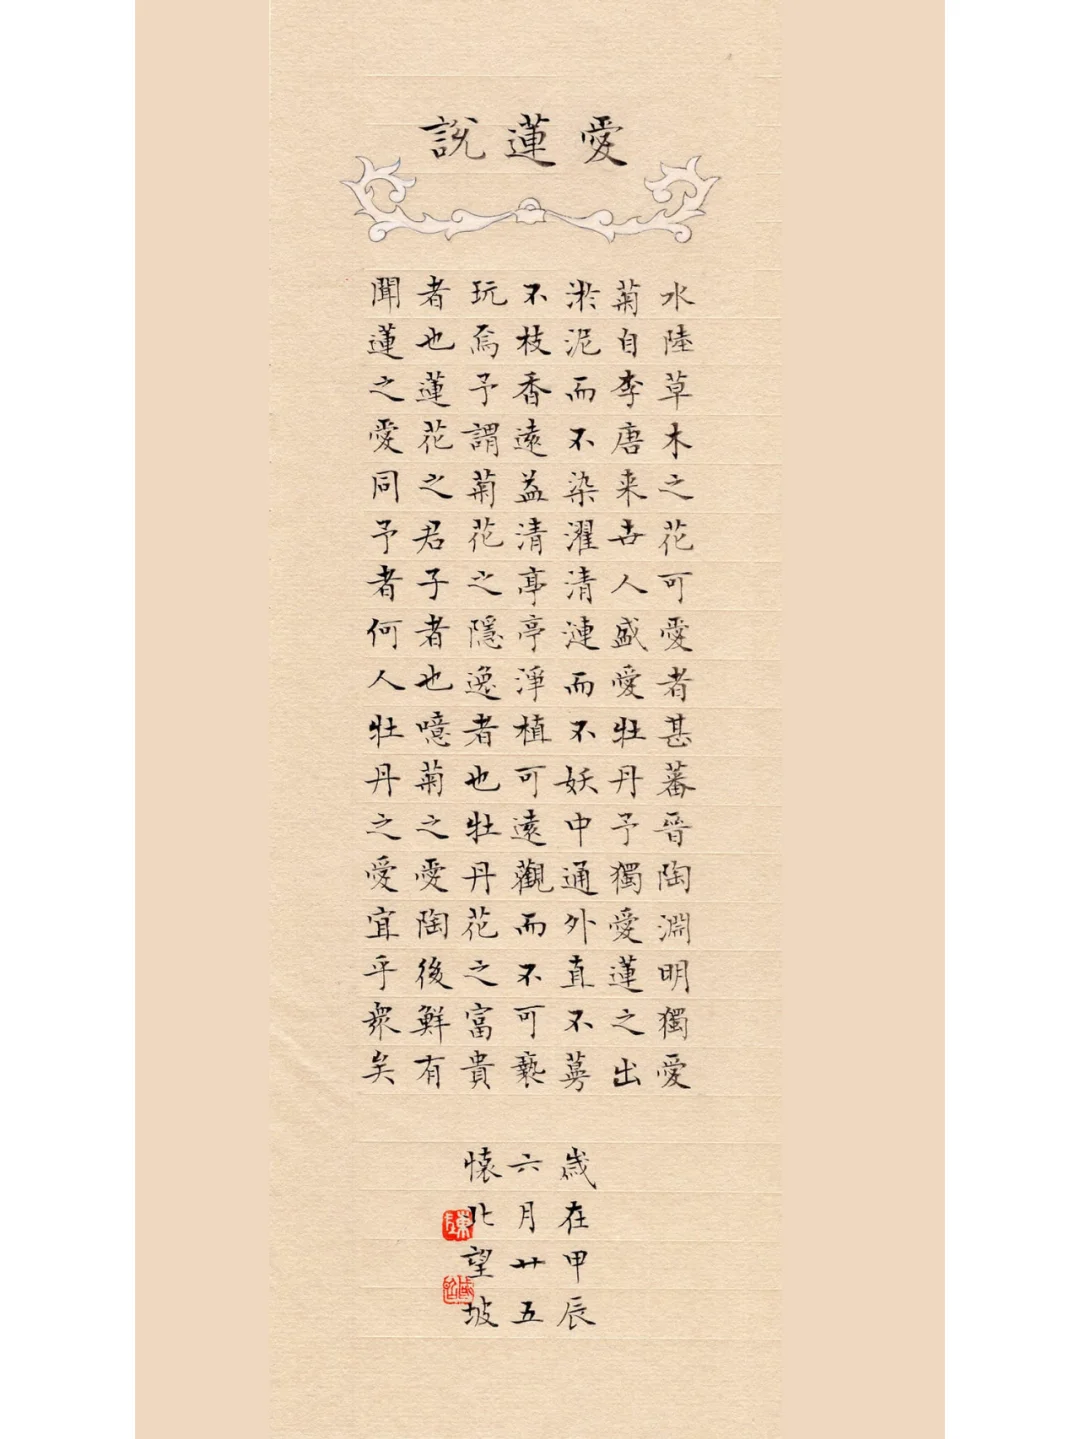 愛蓮說
水陸草木之花可愛者甚蕃晉陶淵明獨愛
菊自李唐来世人盛愛牡丹予獨愛蓮之出
淤泥而不染濯清漣而不妖中通外直不蔓
不枝香遠益清亭亭淨植可遠觀而不可褻
玩焉予謂菊花之隱逸者也牡丹花之富貴
者也蓮花之君子者也噫菊之愛陶後鮮有
聞蓮之愛同予者何人牡丹之愛宜乎眾矣
歲在甲辰
六月廿五
懷北望坡